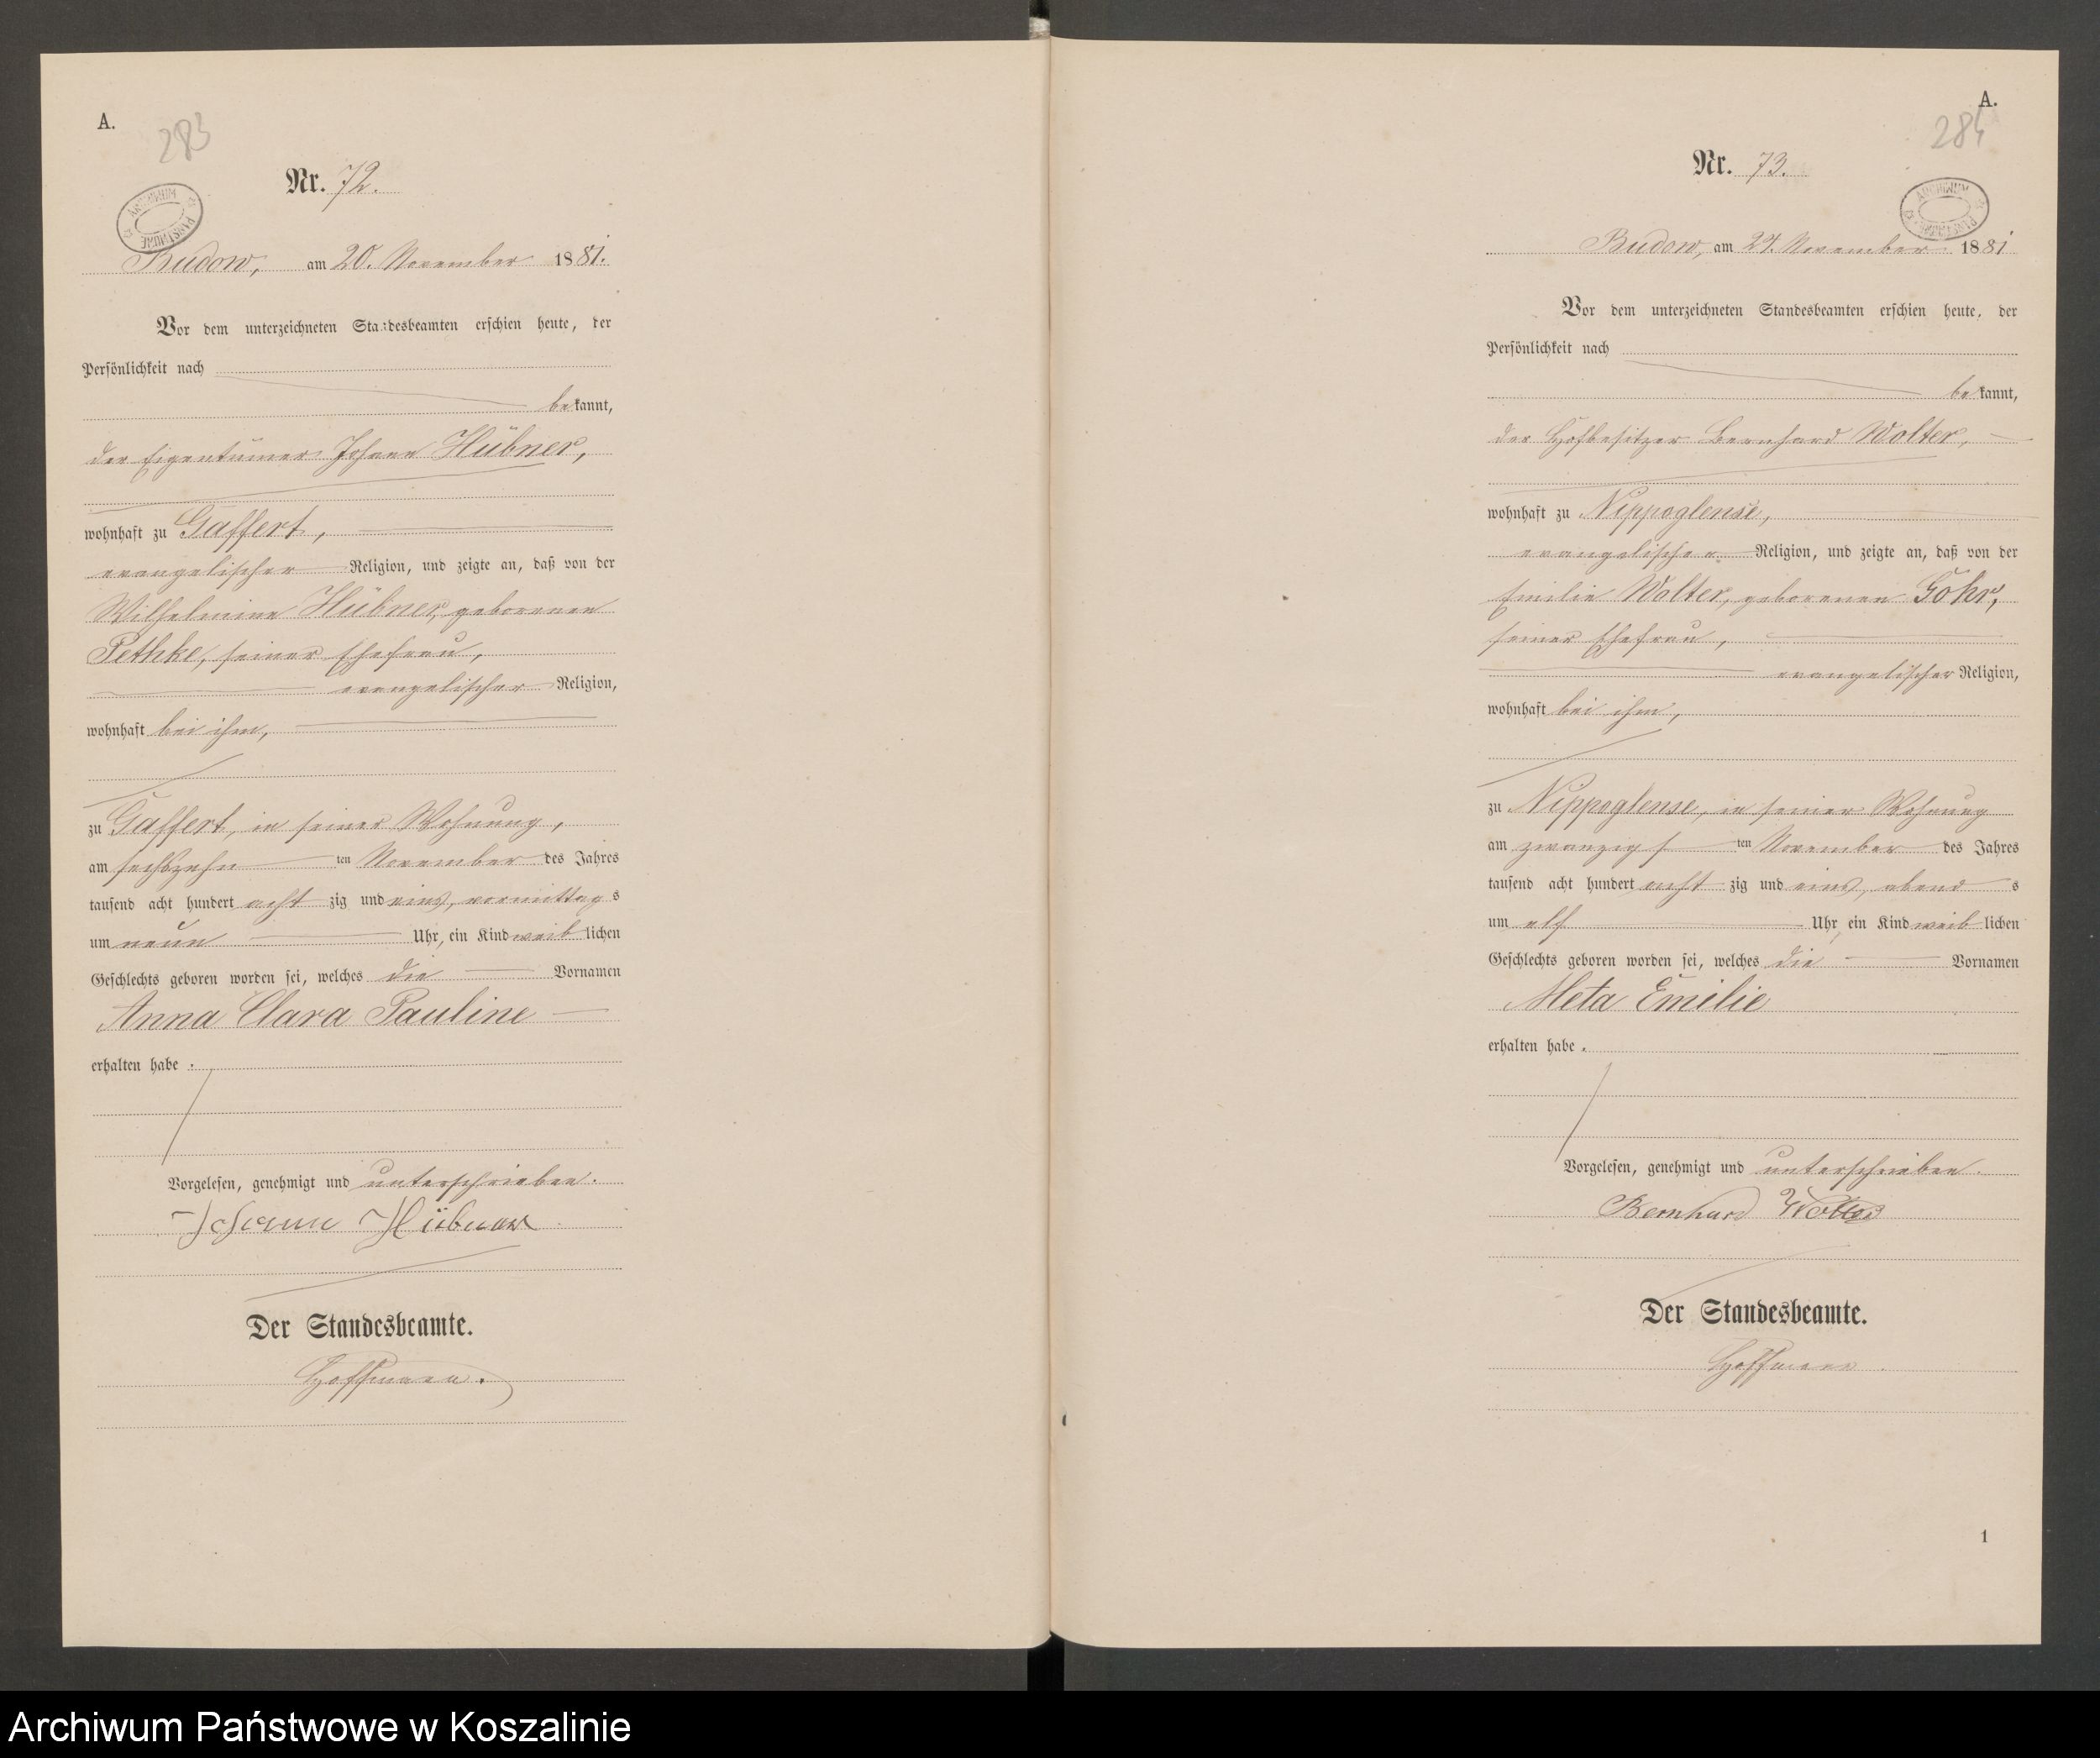 A.
283
Nr. 72.
ARCHIWUM PAŃSTWOWE
Budow, am 20. November 1881.
Vor dem unterzeichneten Standesbeamten erschien heute, der
Persönlichkeit nach
bekannt,
der Eigentümer Johann Hübner,
wohnhaft zu Gaffert,
evangelischer Religion, und zeigte an, daß von der
Wilhelmine Hübner, geborenen
Pethke, seiner Ehefrau,
evangelischer Religion,
wohnhaft bei ihm,
zu Gaffert, in seiner Wohnung,
am sechszehn ten November des Jahres
tausend acht hundert acht zig und eins, vormittags
um neun Uhr, ein Kind weiblichen
Geschlechts geboren worden sei, welches die Vornamen
Anna Clara Pauline
erhalten habe.
Vorgelesen, genehmigt und unterschrieben.
Johann Hübner
Der Standesbeamte.
Hoffmann.
A.
284
Nr. 73.
ARCHIWUM PAŃSTWOWE
Budow, am 27. November 1881
Vor dem unterzeichneten Standesbeamten erschien heute, der
Persönlichkeit nach
bekannt,
der Hofbesitzer Bernhard Wolter,
wohnhaft zu Nippoglense,
evangelischer Religion, und zeigte an, daß von der
Emilie Wolter, geborenen Gohr,
seiner Ehefrau,
evangelischer Religion,
wohnhaft bei ihm,
zu Nippoglense, in seiner Wohnung
am zwanzigs ten November des Jahres
tausend acht hundert acht zig und eins, abends
um elf Uhr, ein Kind weiblichen
Geschlechts geboren worden sei, welches die Vornamen
Meta Emilie
erhalten habe.
Vorgelesen, genehmigt und unterschrieben.
Bernhard Wolter
Der Standesbeamte.
Hoffmann.
1
Archiwum Państwowe w Koszalinie